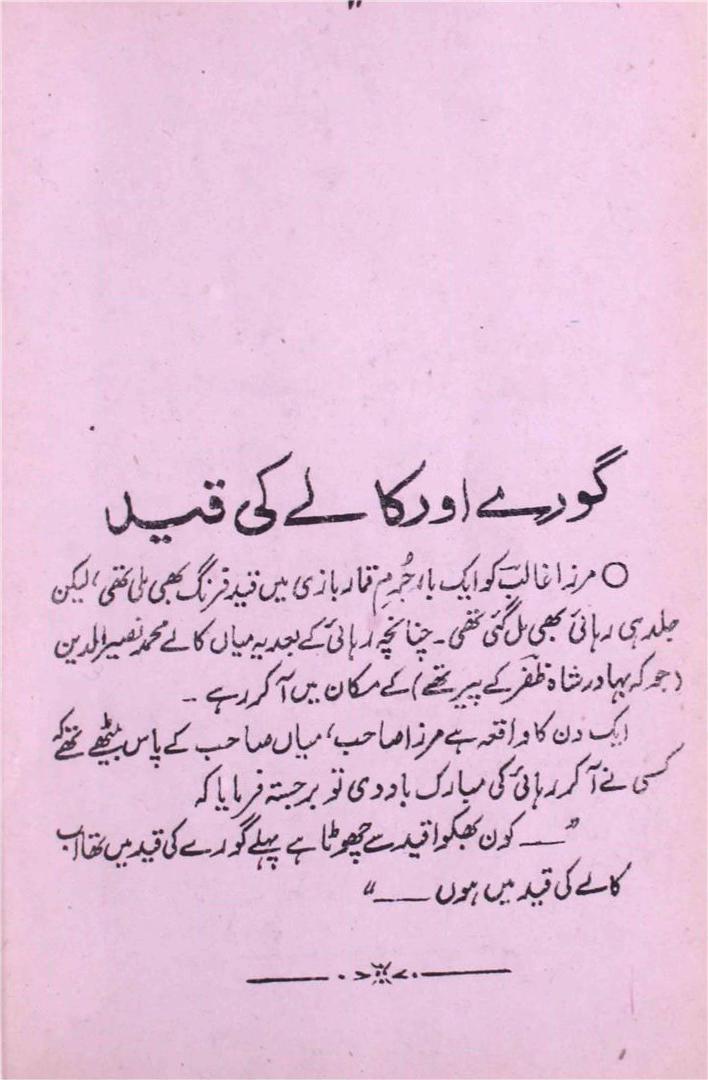 گورے اور کالے کی قید
○ مرزا غالبؔ کو ایک بار جُرمِ قمار بازی میں قید فرنگ بھی ملی تھی، لیکن
جلد ہی رہائی بھی مل گئی تھی۔ چنانچہ رہائی کے بعد یہ میاں کالے محمد نصیر الدین
(جو کہ بہادر شاہ ظفرؔ کے پیر تھے) کے مکان میں آ کر رہے ۔۔
ایک دن کا واقعہ ہے مرزا صاحب، میاں صاحب کے پاس بیٹھے تھے کہ
کسی نے آ کر رہائی کی مبارک باد دی تو برجستہ فرمایا کہ
"___ کون بھکوا قید سے چھوٹا ہے پہلے گورے کی قید میں تھا اب
کالے کی قید میں ہوں ___"